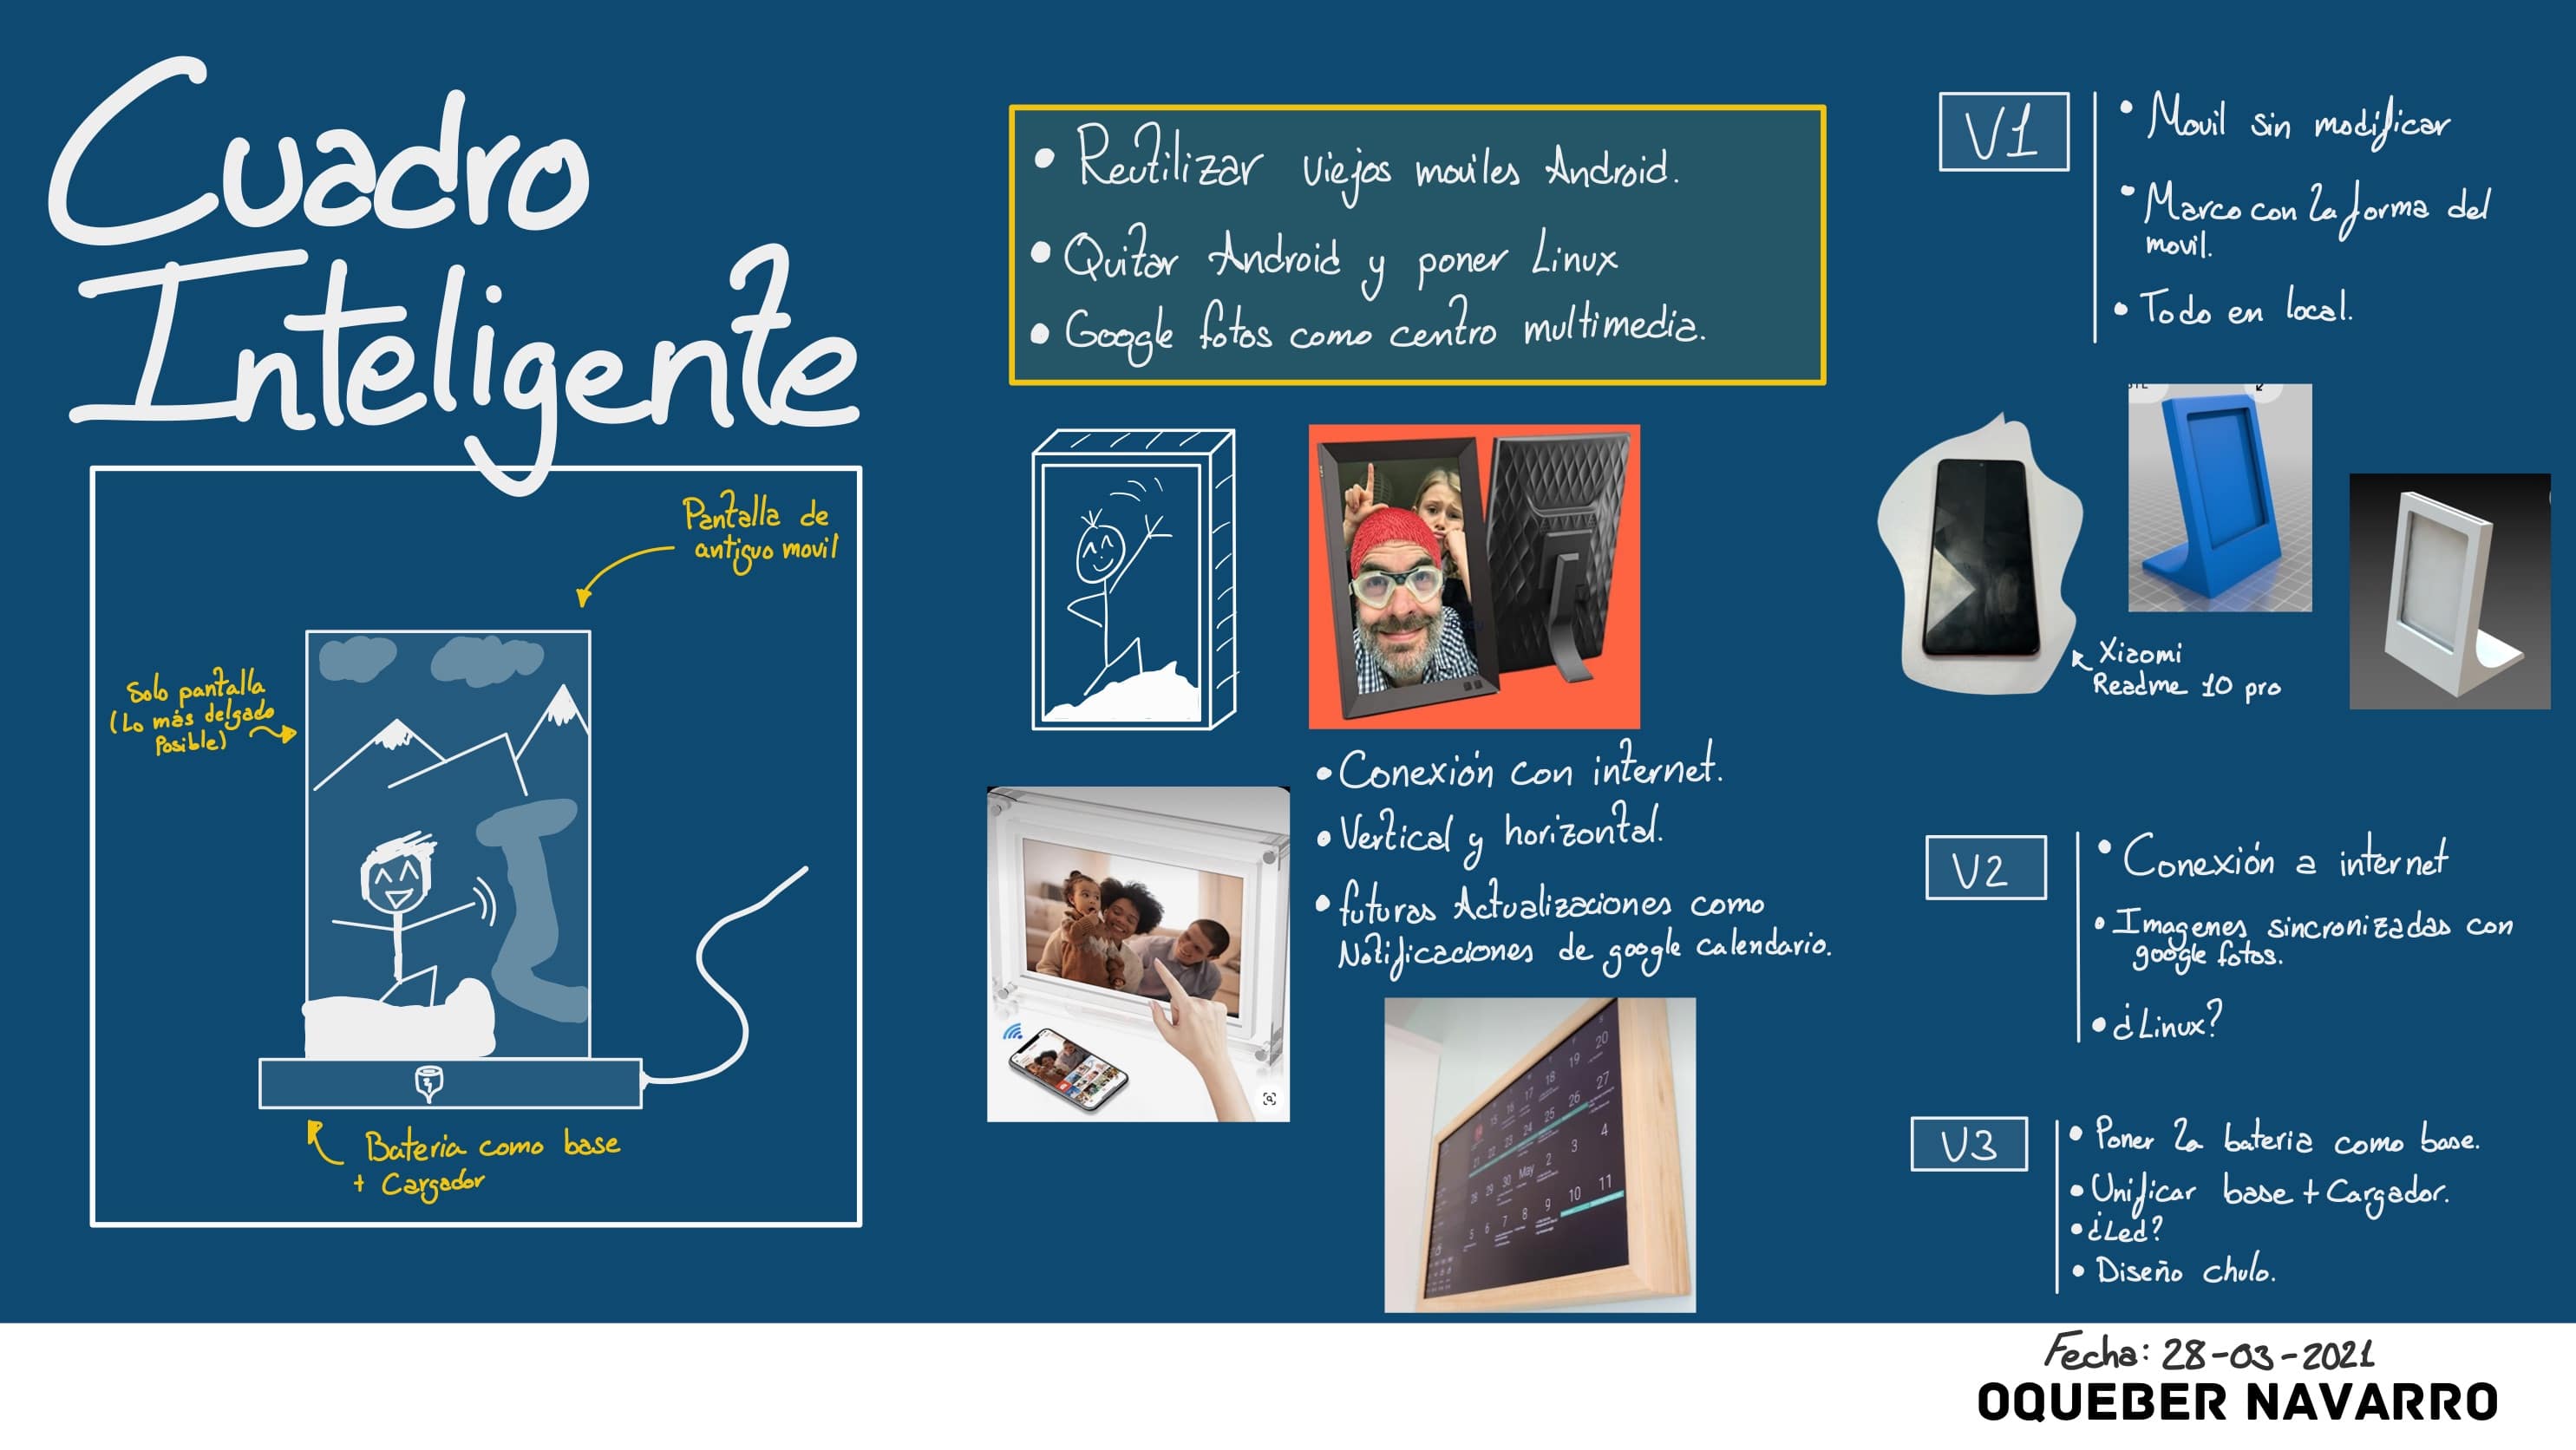 Cuadro
Inteligente
Pantalla de
antiguo movil
Solo pantalla
(Lo más delgado
Posible)
Bateria como base
+ Cargador
• Reutilizar viejos moviles Android.
• Quitar Android y poner Linux
• Google fotos como centro multimedia.
• Conexión con internet.
• Vertical y horizontal.
• futuras Actualizaciones como
Notificaciones de google calendario.
V1
• Movil sin modificar
• Marco con la forma del
movil.
• Todo en local.
Xiaomi
Readme 10 pro
V2
• Conexión a internet
• Imagenes sincronizadas con
google fotos.
• ¿Linux?
V3
• Poner la bateria como base.
• Unificar base + Cargador.
• ¿Led?
• Diseño chulo.
Fecha: 28-03-2021
OQUEBER NAVARRO